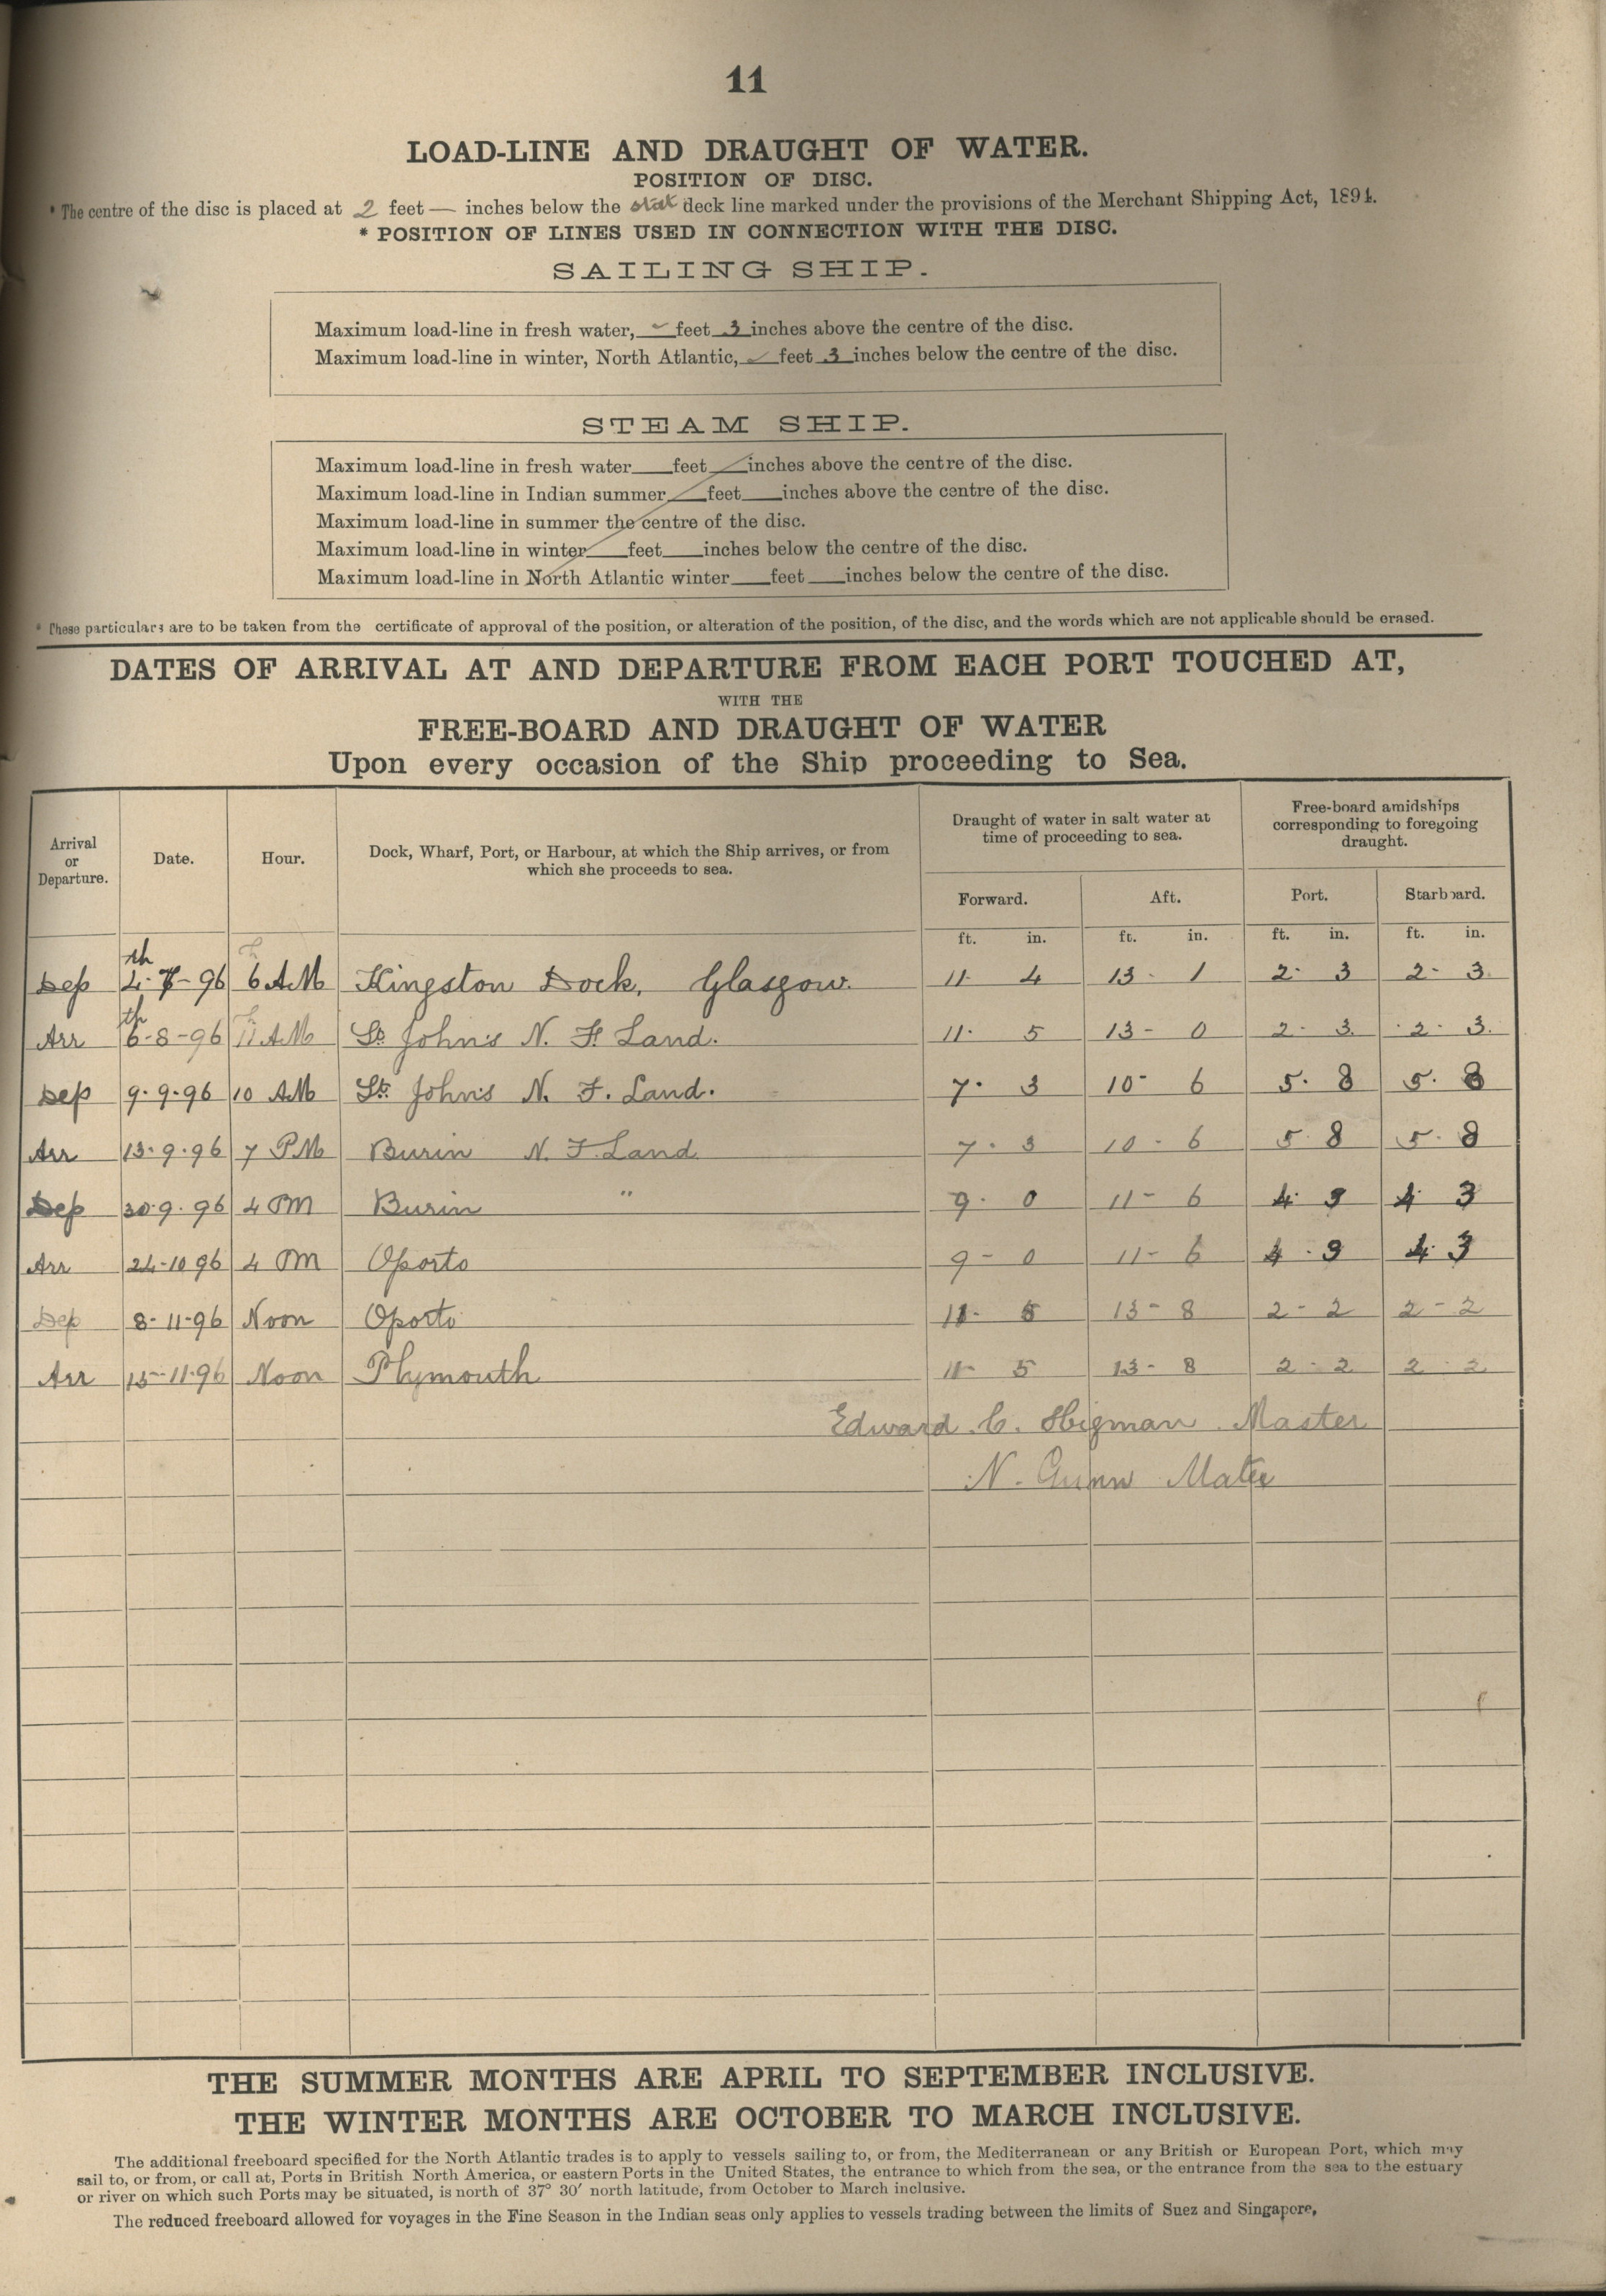 11
LOAD-LINE AND DRAUGHT OF WATER.
POSITION OF DISC.
* The centre of the disc is placed at 2 feet — inches below the stat deck line marked under the provisions of the Merchant Shipping Act, 1894.
* POSITION OF LINES USED IN CONNECTION WITH THE DISC.
SAILING SHIP.
Maximum load-line in fresh water, feet 3 inches above the centre of the disc.
Maximum load-line in winter, North Atlantic, feet 3 inches below the centre of the disc.
STEAM SHIP.
Maximum load-line in fresh water feet inches above the centre of the disc.
Maximum load-line in Indian summer feet inches above the centre of the disc.
Maximum load-line in summer the centre of the disc.
Maximum load-line in winter feet inches below the centre of the disc.
Maximum load-line in North Atlantic winter feet inches below the centre of the disc.
* These particulars are to be taken from the certificate of approval of the position, or alteration of the position, of the disc, and the words which are not applicable should be erased.
DATES OF ARRIVAL AT AND DEPARTURE FROM EACH PORT TOUCHED AT,
WITH THE
FREE-BOARD AND DRAUGHT OF WATER
Upon every occasion of the Ship proceeding to Sea.
Arrival or Departure. Date. Hour. Dock, Wharf, Port, or Harbour, at which the Ship arrives, or from which she proceeds to sea. Draught of water in salt water at time of proceeding to sea. Free-board amidships corresponding to foregoing draught.
Forward. Aft. Port. Starboard.
ft. in. ft. in. ft. in. ft. in.
Dep 4th-7-96 6 AM Kingston Dock, Glasgow. 11- 4 13- 1 2- 3 2- 3
Arr 6th-8-96 11 AM St. John's N. F. Land. 11- 5 13- 0 2- 3 2- 3
Dep 9.9.96 10 AM St. John's N. F. Land. 7- 3 10- 6 5. 8 5. 8
Arr 13.9.96 7 PM Burin N. F. Land 7- 3 10- 6 5. 8 5. 8
Dep 30.9.96 4 PM Burin " 9- 0 11- 6 4. 3 4. 3
Arr 24-10 96 4 PM Oporto 9- 0 11- 6 4. 3 4. 3
Dep 8-11-96 Noon Oporto 11- 5 13- 8 2- 2 2- 2
Arr 15-11-96 Noon Plymouth 11- 5 13- 8 2- 2 2- 2
Edward C. Higman Master
N. Gunn Mate
THE SUMMER MONTHS ARE APRIL TO SEPTEMBER INCLUSIVE.
THE WINTER MONTHS ARE OCTOBER TO MARCH INCLUSIVE.
The additional freeboard specified for the North Atlantic trades is to apply to vessels sailing to, or from, the Mediterranean or any British or European Port, which may
sail to, or from, or call at, Ports in British North America, or eastern Ports in the United States, the entrance to which from the sea, or the entrance from the sea to the estuary
or river on which such Ports may be situated, is north of 37° 30′ north latitude, from October to March inclusive.
The reduced freeboard allowed for voyages in the Fine Season in the Indian seas only applies to vessels trading between the limits of Suez and Singapore,